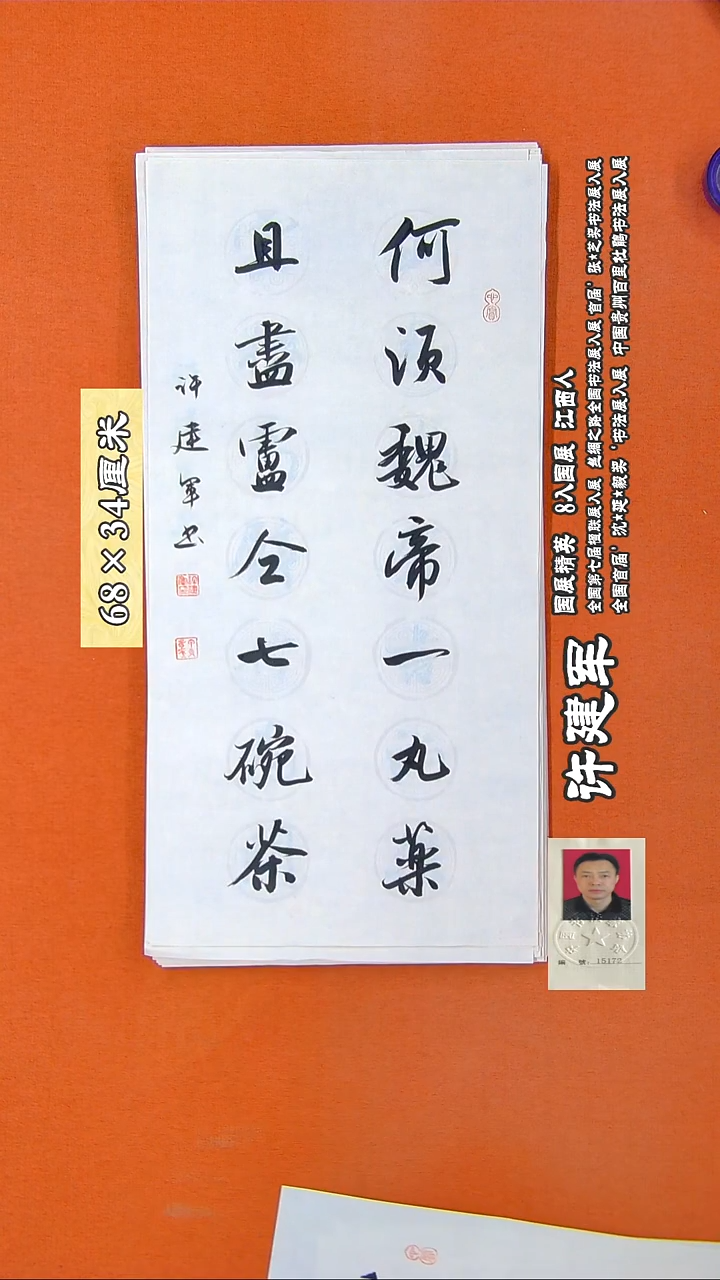 何须魏帝一丸药
且盡盧仝七碗茶
许建军书
68×34厘米
国展精英 8入国展 江西人
全国第七届楹联展入展 丝绸之路全国书法展入展 首届'张*芝奖书法展入展
全国首届'沈*延*毅奖'书法展入展 中国贵州百里杜鹃书法展入展
许建军
编 號: 15172